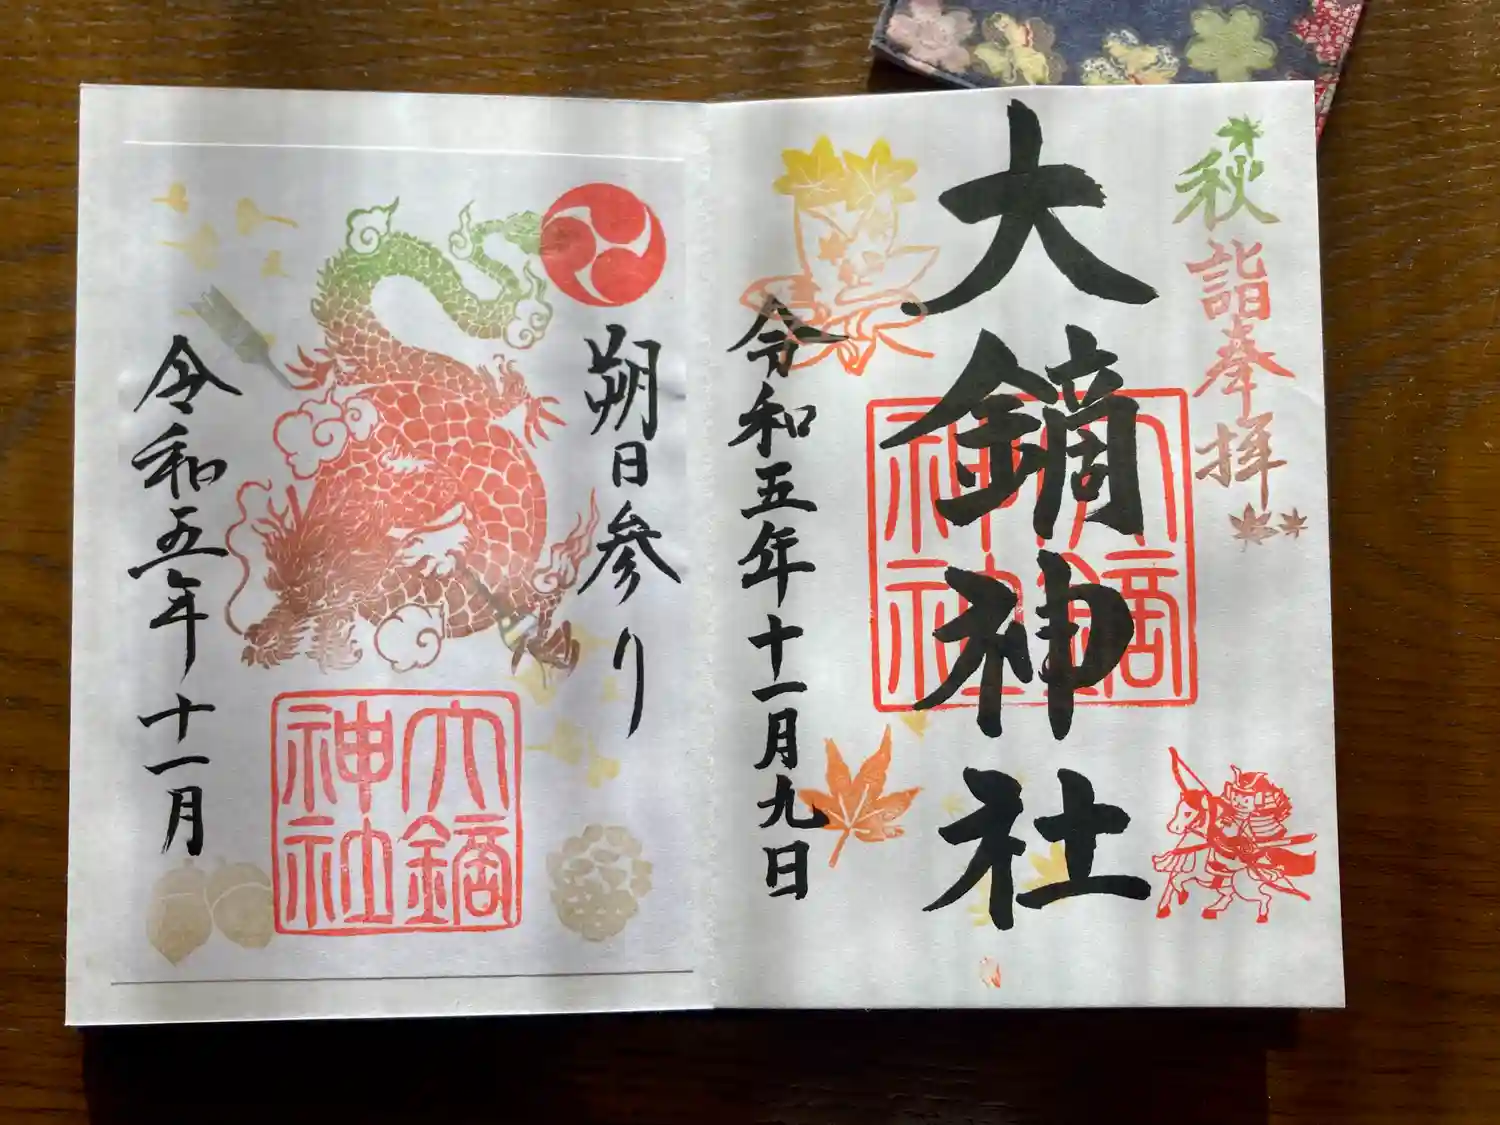 秋詣奉拝
大鏑神社
大鏑神社
令和五年十一月九日
朔日参り
大鏑神社
令和五年十一月